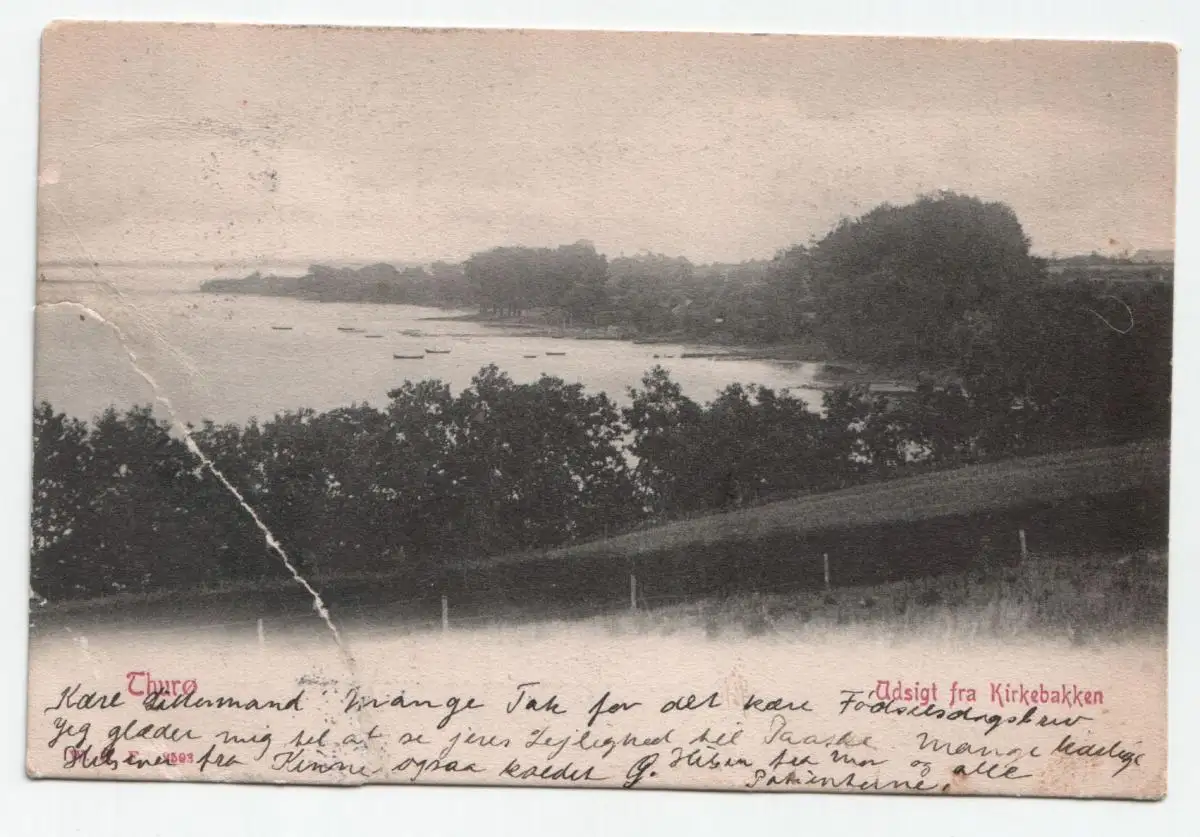 Thurø
Udsigt fra Kirkebakken
Kære Lillermand mange Tak for det kære Fødselsdagsbrev
Jeg glæder mig til at se jeres Lejlighed til Paaske mange kærlige
Hilsener fra Kinne ogsaa kaldet G. Hilsen fra Mor og alle
Patienterne.
8593